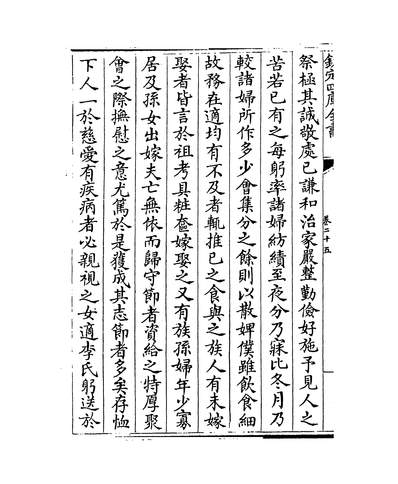 欽定四庫全書
卷二十五
祭極其誠敬處已謙和治家嚴整勤儉好施予見人之
苦若已有之每躬率諸婦紡績至夜分乃寐比冬月乃
較諸婦所作多少會集分之餘則以散婢僕雖飲食細
故務在適均有不及者輒推已之食與之族人有未嫁
娶者皆言於祖考具粧奩嫁娶之又有族孫婦年少寡
居及孫女出嫁夫亡無依而歸守節者資給之特厚聚
會之際撫慰之意尤篤於是獲成其志節者多矣存恤
下人一於慈愛有疾病者必親視之女適李氏躬送於